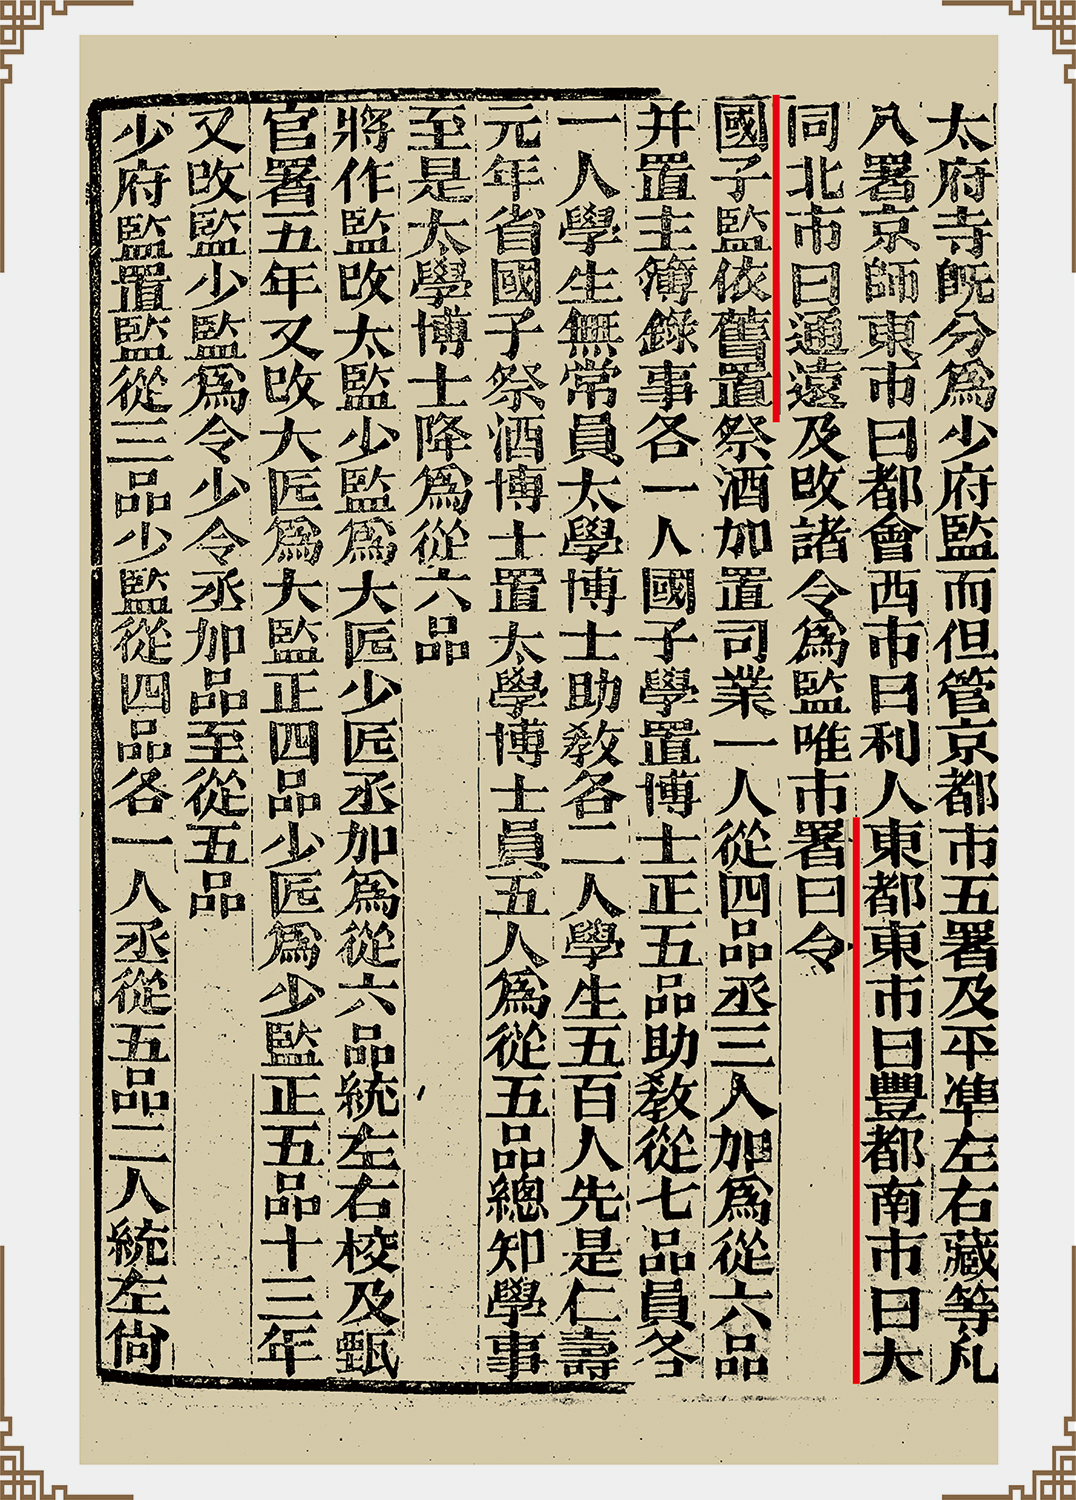 太府寺旣分爲少府監而但管京都市五署及平凖左右藏等凡
八署京師東市曰都會西市曰利人東都東市曰豐都南市曰大
同北市曰通遠及改諸令爲監唯市署曰令
國子監依舊置祭酒加置司業一人從四品丞三人加爲從六品
并置主簿錄事各一人國子學置博士正五品助敎從七品員各
一人學生無常員太學博士助敎各二人學生五百人先是仁壽
元年省國子祭酒博士置太學博士員五人爲從五品總知學事
至是太學博士降爲從六品
將作監改太監少監爲大匠少匠丞加爲從六品統左右校及甄
官署五年又改大匠爲大監正四品少匠爲少監正五品十三年
又改監少監爲令少令丞加品至從五品
少府監置監從三品少監從四品各一人丞從五品二人統左尙